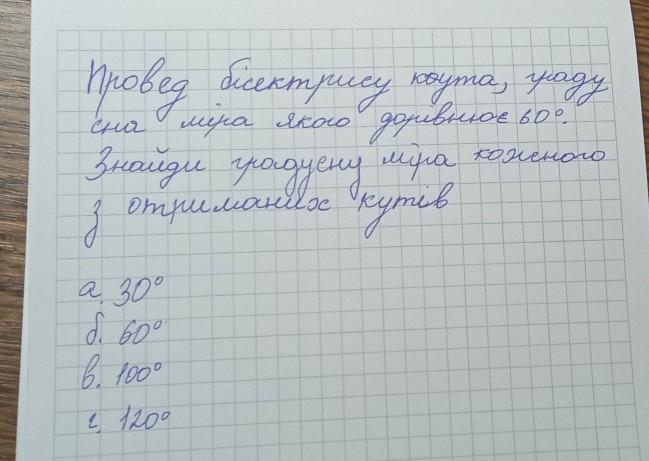 Провед бісектрису коута, граду
сна міра якого дорівнює 60°.
Знайди градусну міра коженого
з отриманих кутів
а. 30°
б. 60°
в. 100°
г. 120°